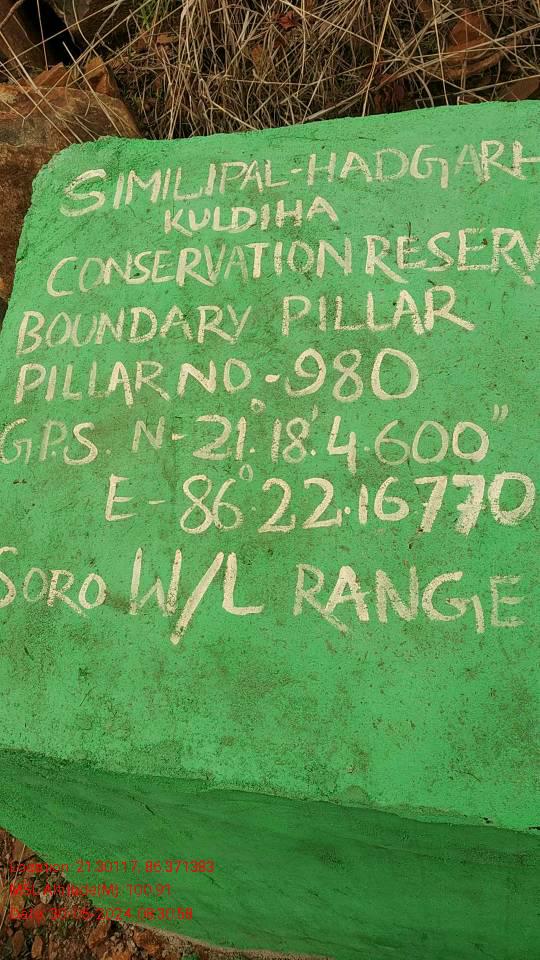 SIMILIPAL-HADGARH
KULDIHA
CONSERVATION RESERV
BOUNDARY PILLAR
PILLAR NO-980
G.P.S. N-21°.18'.4.600"
E-86°.22.16770
SORO W/L RANGE
Location: 21.30117, 86.371383
MSL Altitude(M): 100.91
Date: 30-05-2024 08:30:58